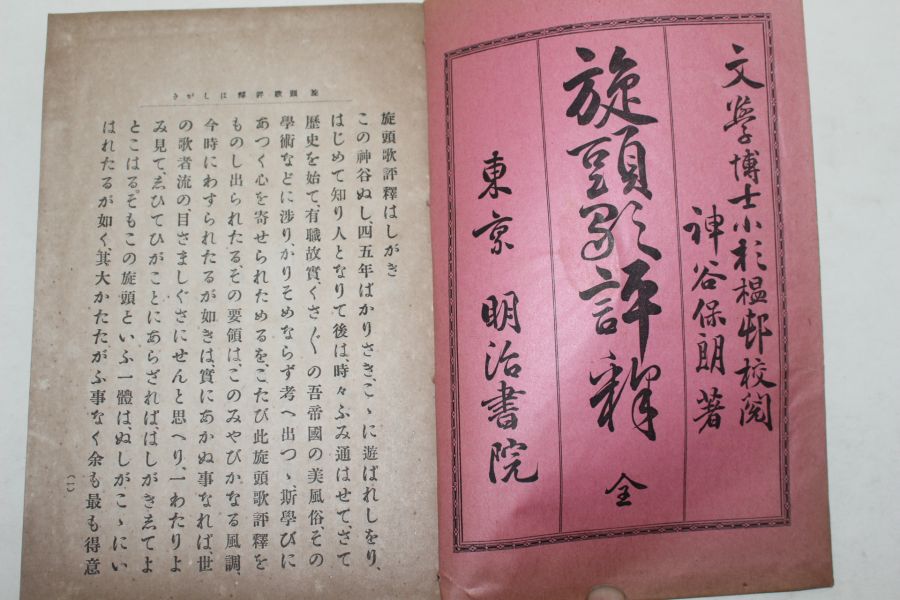 文學博士小杉榲邨校閲
神谷保朗著
旋頭歌評釋 全
東京 明治書院
旋頭歌評釋はしがき
旋頭歌評釋はしがき
この神谷ぬし、四五年ばかりさき、こゝに遊ばれしをり、
はじめて知り人となりて後は、時々ふみ通はせて、さて
歴史を始て、有職故實くさ〴〵の吾帝國の美風俗、その
學術などに渉り、かりそめならず考へ出つゝ、斯學びに
あつく心を寄せられためるを、こたび此旋頭歌評釋を
ものし出られたる、その要領は、このみやびかなる風調、
今時にわすられたるが如きは、實にあかぬ事なれば、世
の歌者流の、目さましぐさにせんと思へり、一わたりよ
み見て、ゑひてひがことにあらざれば、はしがきゑてよ
とこはる。そもこの旋頭といふ一體は、ぬしがこゝにい
はれたるが如く、其大かたたがふ事なく余も最も得意
(一)